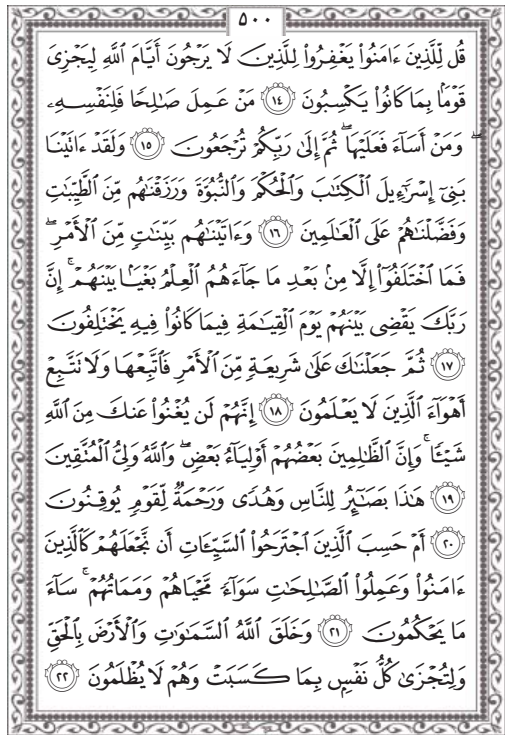 ٥٠٠
قُل لِّلَّذِينَ ءَامَنُوا۟ يَغْفِرُوا۟ لِلَّذِينَ لَا يَرْجُونَ أَيَّامَ اللَّهِ لِيَجْزِىَ
قَوْمًۢا بِمَا كَانُوا۟ يَكْسِبُونَ ١٤ مَنْ عَمِلَ صَـٰلِحًا فَلِنَفْسِهِۦ
ۖ وَمَنْ أَسَآءَ فَعَلَيْهَا ۖ ثُمَّ إِلَىٰ رَبِّكُمْ تُرْجَعُونَ ١٥ وَلَقَدْ ءَاتَيْنَا
بَنِىٓ إِسْرَٰٓءِيلَ الْكِتَـٰبَ وَالْحُكْمَ وَالنُّبُوَّةَ وَرَزَقْنَـٰهُم مِّنَ الطَّيِّبَـٰتِ
وَفَضَّلْنَـٰهُمْ عَلَى الْعَـٰلَمِينَ ١٦ وَءَاتَيْنَـٰهُم بَيِّنَـٰتٍ مِّنَ الْأَمْرِ ۖ
فَمَا اخْتَلَفُوٓا۟ إِلَّا مِنۢ بَعْدِ مَا جَآءَهُمُ الْعِلْمُ بَغْيًۢا بَيْنَهُمْ ۚ إِنَّ
رَبَّكَ يَقْضِى بَيْنَهُمْ يَوْمَ الْقِيَـٰمَةِ فِيمَا كَانُوا۟ فِيهِ يَخْتَلِفُونَ
١٧ ثُمَّ جَعَلْنَـٰكَ عَلَىٰ شَرِيعَةٍ مِّنَ الْأَمْرِ فَاتَّبِعْهَا وَلَا تَتَّبِعْ
أَهْوَآءَ الَّذِينَ لَا يَعْلَمُونَ ١٨ إِنَّهُمْ لَن يُغْنُوا۟ عَنكَ مِنَ اللَّهِ
شَيْـًٔا ۚ وَإِنَّ الظَّـٰلِمِينَ بَعْضُهُمْ أَوْلِيَآءُ بَعْضٍ ۖ وَاللَّهُ وَلِىُّ الْمُتَّقِينَ
١٩ هَـٰذَا بَصَـٰٓئِرُ لِلنَّاسِ وَهُدًى وَرَحْمَةٌ لِّقَوْمٍ يُوقِنُونَ
٢٠ أَمْ حَسِبَ الَّذِينَ اجْتَرَحُوا۟ السَّيِّـَٔاتِ أَن نَّجْعَلَهُمْ كَالَّذِينَ
ءَامَنُوا۟ وَعَمِلُوا۟ الصَّـٰلِحَـٰتِ سَوَآءً مَّحْيَاهُمْ وَمَمَاتُهُمْ ۚ سَآءَ
مَا يَحْكُمُونَ ٢١ وَخَلَقَ اللَّهُ السَّمَـٰوَٰتِ وَالْأَرْضَ بِالْحَقِّ
وَلِتُجْزَىٰ كُلُّ نَفْسٍۭ بِمَا كَسَبَتْ وَهُمْ لَا يُظْلَمُونَ ٢٢